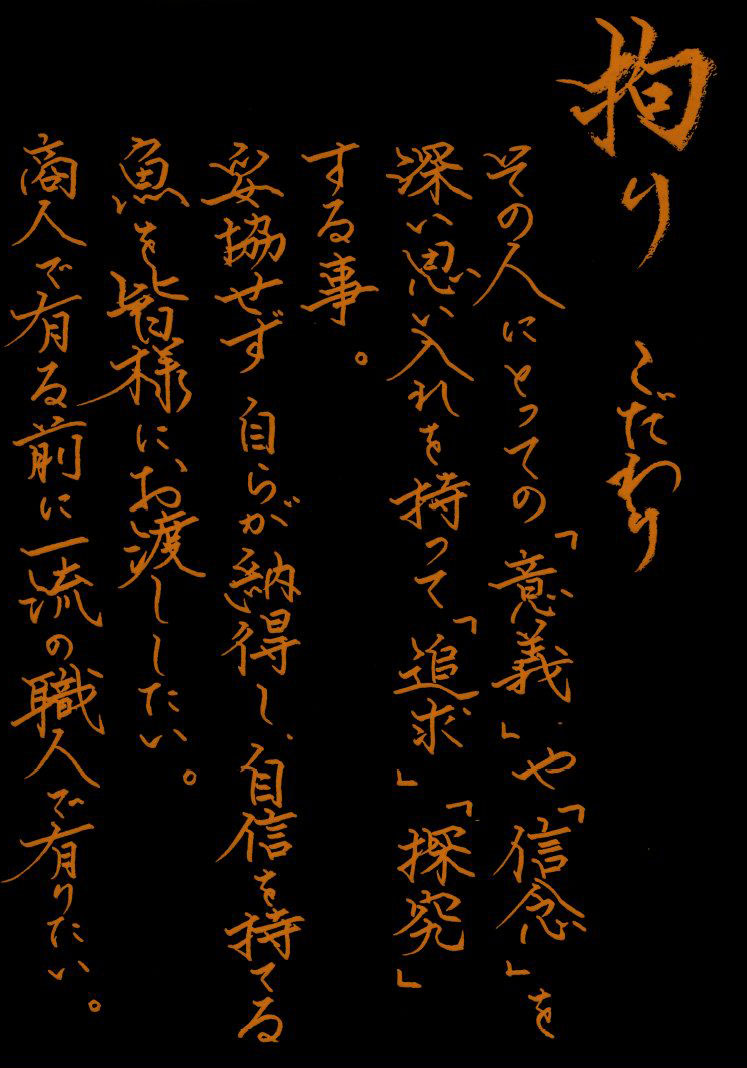 拘り こだわり
その人にとっての「意義」や「信念」を
深い思い入れを持って「追求」「探究」
する事。
妥協せず 自らが納得し、自信を持てる
魚を皆様に、お渡ししたい。
商人で有る前に一流の職人で有りたい。